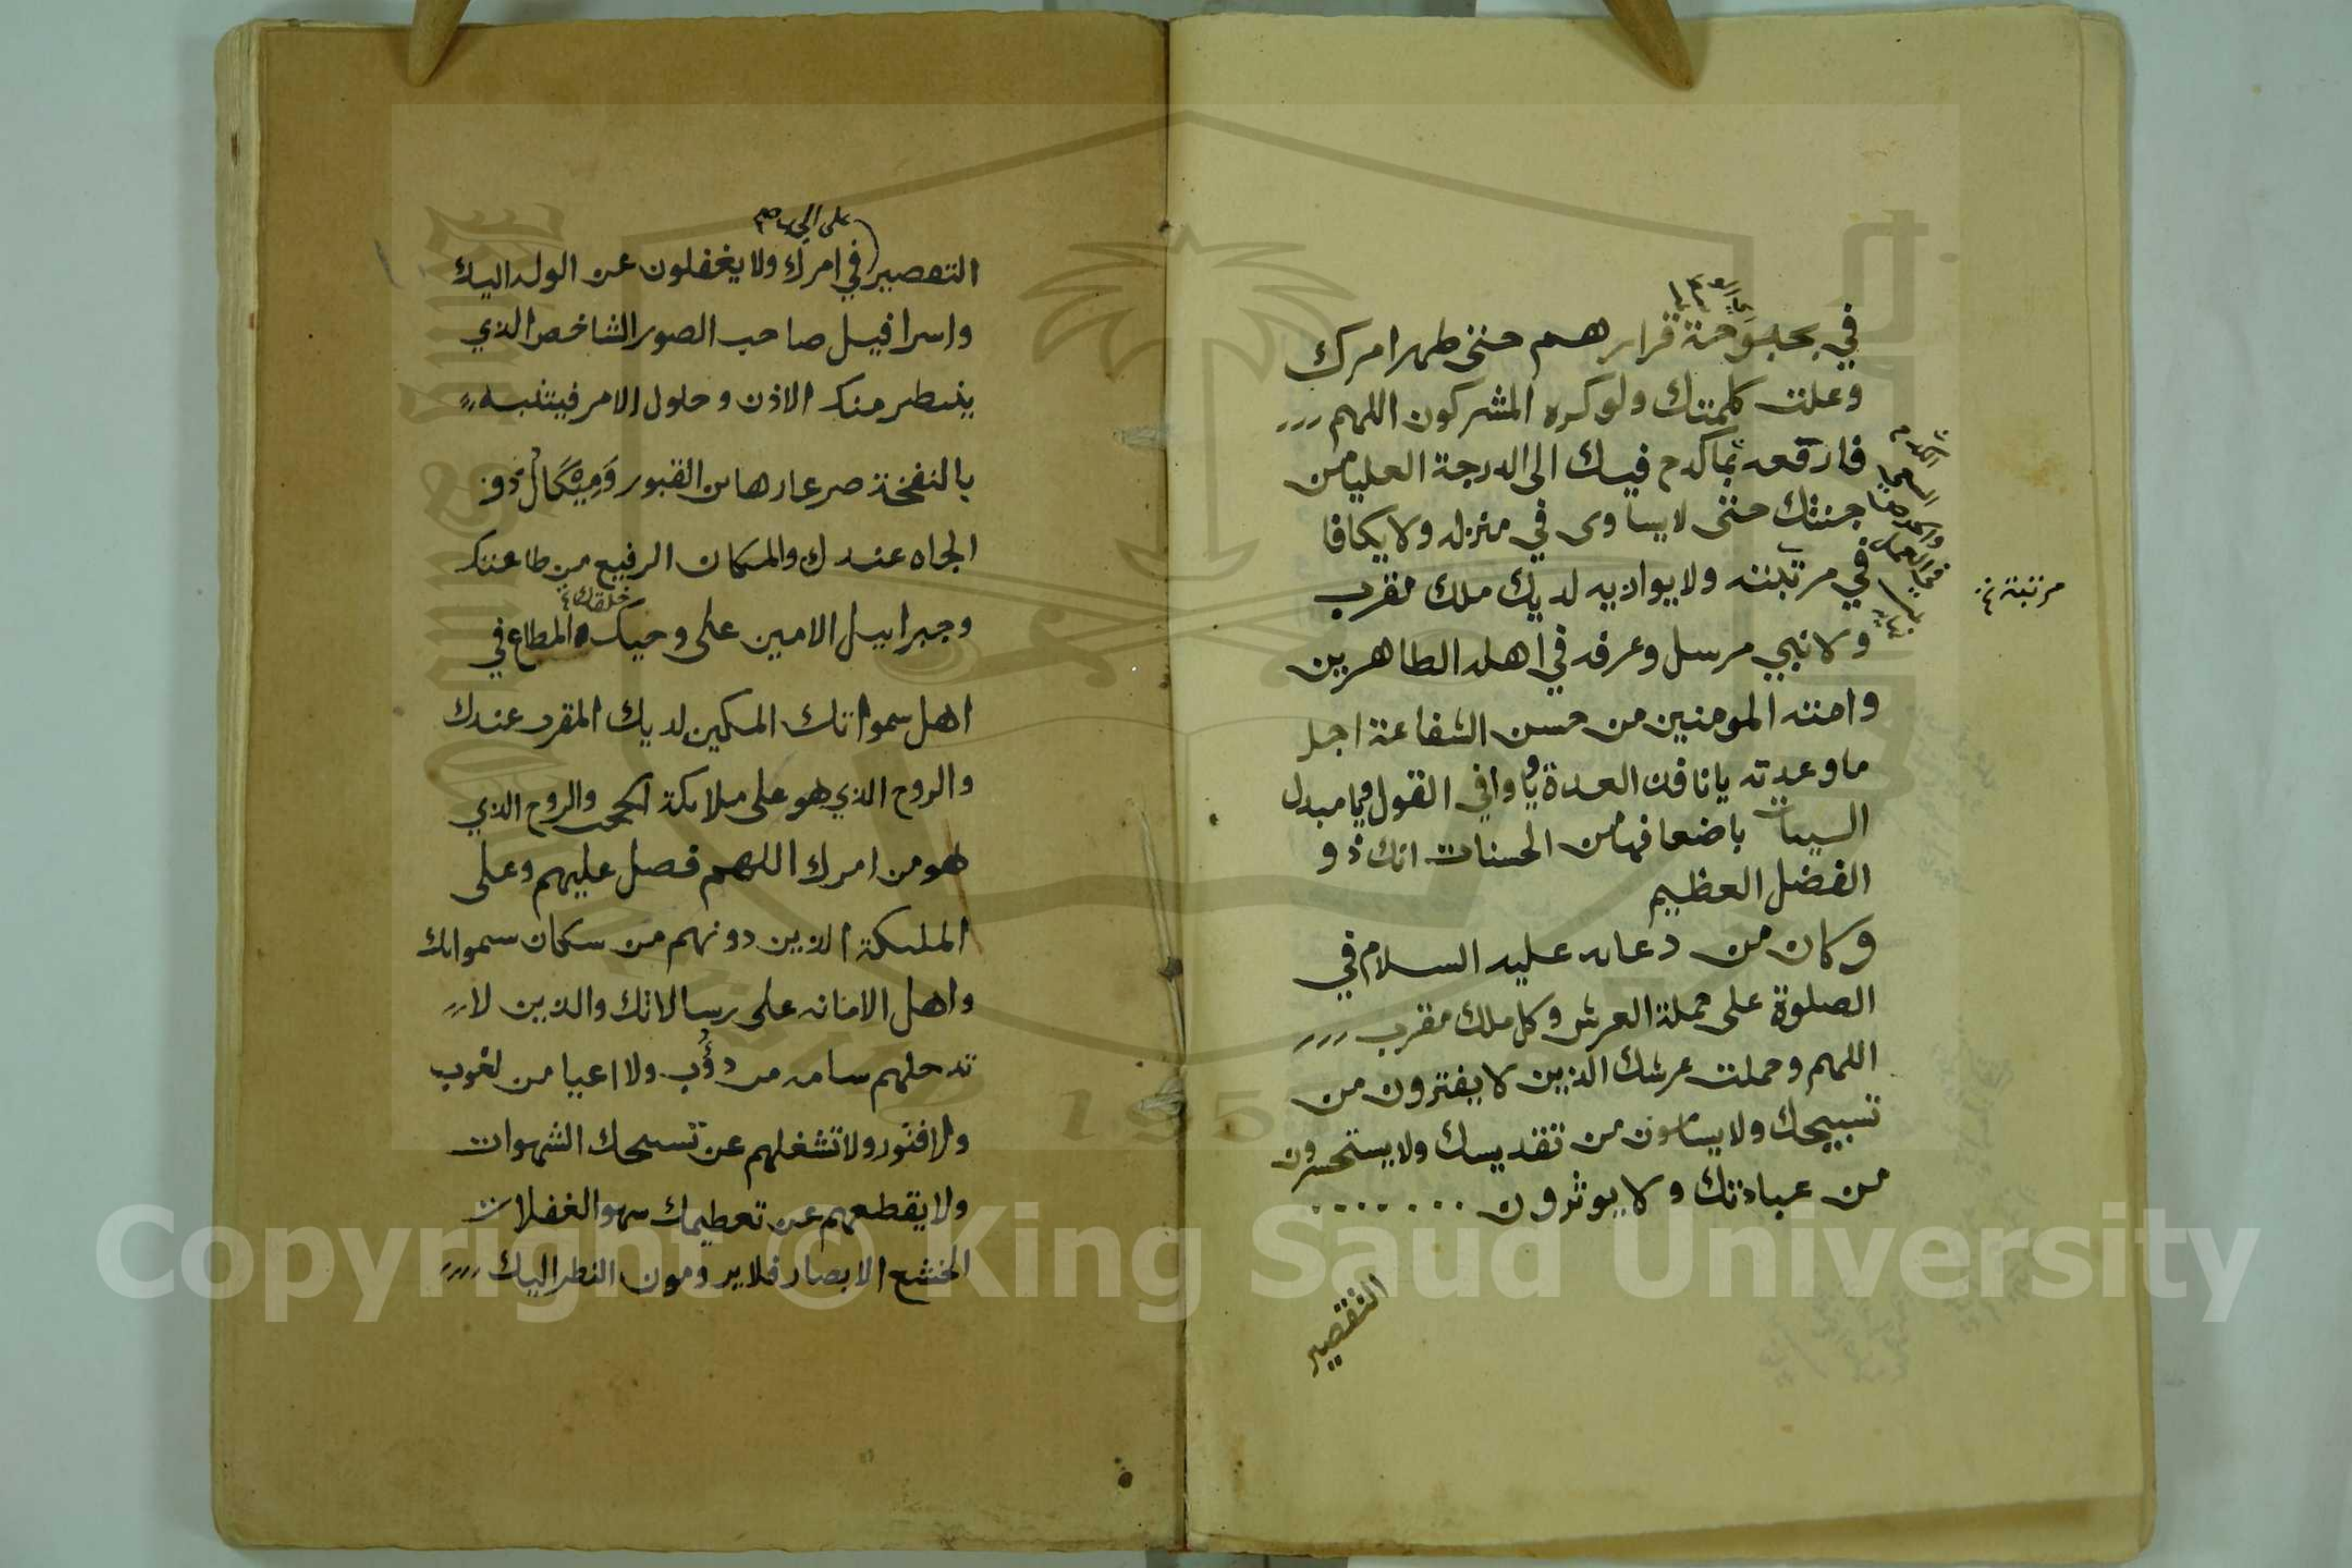 في بحبوحة قرارهم حتى ظهر امرك
وعلت كلمتك ولو كره المشركون اللهم
فارفعه بما كدح فيك الى الدرجة العليا من
جنتك حتى لا يساوى في منزله ولا يكافا
في مرتبته ولا يوازيه لديك ملك مقرب
ولا نبي مرسل وعرفه في اهله الطاهرين
وامته المومنين من حسن الشفاعة اجل
ما وعدته يا نافذ العدة يا وافي القول ويا مبدل
السيات باضعافها من الحسنات انك ذو
الفضل العظيم
وكان من دعايه عليه السلام في
الصلوة على حملة العرش وكل ملك مقرب
اللهم وحملت عرشك الذين لا يفترون من
تسبيحك ولا يسامون من تقديسك ولا يستحسرون
من عبادتك ولا يوثرون
التقصير
الكدح
السعي
في العمل
مرتبته خ
على الجد
التقصير في امرك ولا يغفلون عن الوله اليك
واسرافيل صاحب الصور الشاخص الذي
ينتطر منك الاذن وحلول الامر فيتنبه
بالنفخة صرعا رهاين القبور وَمِيْكَالُ ذو
الجاه عندك والمكان الرفيع من طاعتك
خلقك خ
وجبراييل الامين على وحيك المطاع في
اهل سمواتك المكين لديك المقرب عندك
والروح الذي هو على ملايكة الحجب والروح الذي
هو من امرك اللهم فصل عليهم وعلى
الملىكة الذين دونهم من سكان سمواتك
واهل الامانه على رسالاتك والذين لا
تدخلهم سامه من دؤُب ولا اعيا من لغوب
ولا فتور ولا تشغلهم عن تسبيحك الشهوات
ولا يقطعهم عن تعطيمك سهو الغفلات
الخشع الابصار فلا يرومون النطر اليك
Copyright © King Saud University
1957